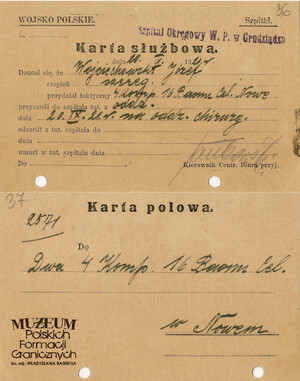 36
WOJSKO POLSKIE. Szpital.
Szpital Okręgowy W. P. w Grudziądzu
Karta służbowa.
dnia 20. X. 1921r
Donosi się, że Wojciechowski Józef
stopień szereg.
przydział taktyczny 4 komp. 16 Baonu Cel. Nowe
przyszedł do szpitala tut. z oddz.
dnia 20.IX.21r. na oddz. chirurg.
odszedł z tut. szpitala do
dnia
umarł w tut. szpitalu dnia
Do Kierownik Centr. Biura przyj.
37
Karta polowa.
2571
Do
Dwa 4 Komp. 16 Baonu Cel.
w Nowem
MUZEUM
Polskich
Formacji
Granicznych
im. mjr. WŁADYSŁAWA RAGINISA